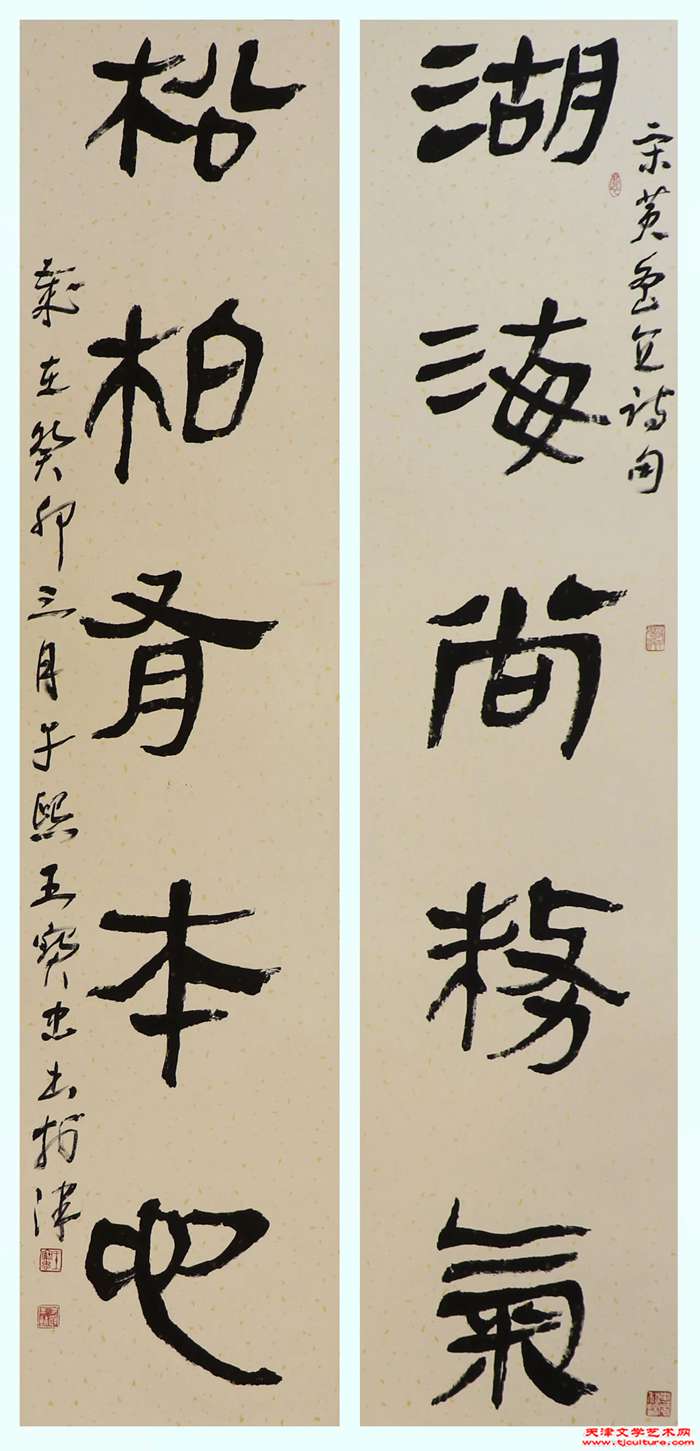 宋黄魯直詩句
湖海尚務氣
松柏有本心
歲在癸卯三月子熙王寶忠书於津
天津文学艺术网
www.tjculture.com